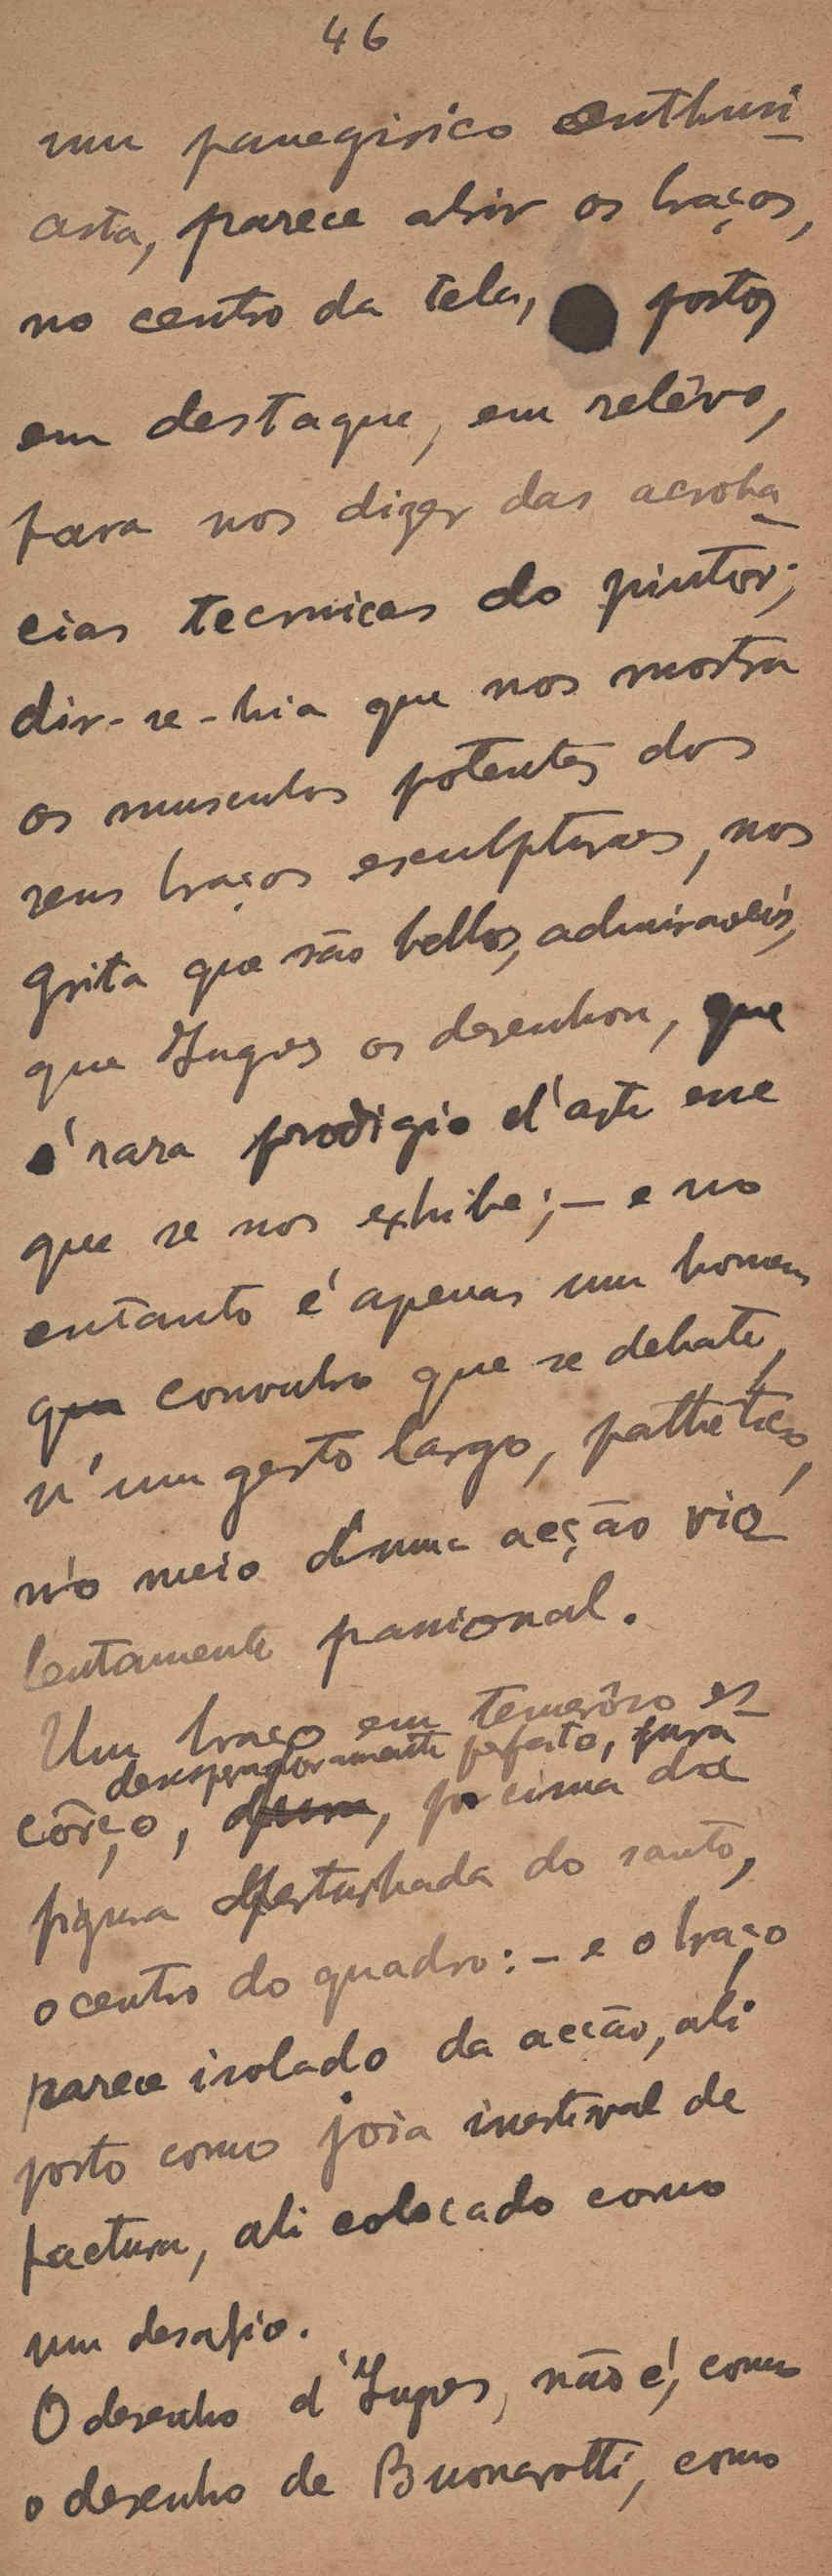 46
um panegirico enthusi
asta, parece abrir os braços,
no centro da tela, postos
em destaque, em relêvo,
para nos dizer das acroba
cias tecnicas do pintor;
dir-se-hia que nos mostra
os musculos potentes dos
seus braços esculpturaes, nos
grita que são bellos, admiraveis,
que Ingres os desenhou, que
é rara prodigio d'arte esse
que se nos exhibe; — e no
entanto é apenas um homem
que convulso que se debate,
n'um gesto largo, pathetico,
n'o meio d'uma acção vio
lentamente passional.
Um braço em temerôso es
desesperadoramente perfeito, para
côrço, por cima da
figura perturbada do santo,
o centro do quadro: — e o braço
parece isolado da acção, ali
posto como joia inestimal de
factura, ali colocado como
um desafio.
O desenho d'Ingres, não é, como
o desenho de Buonarotti, como